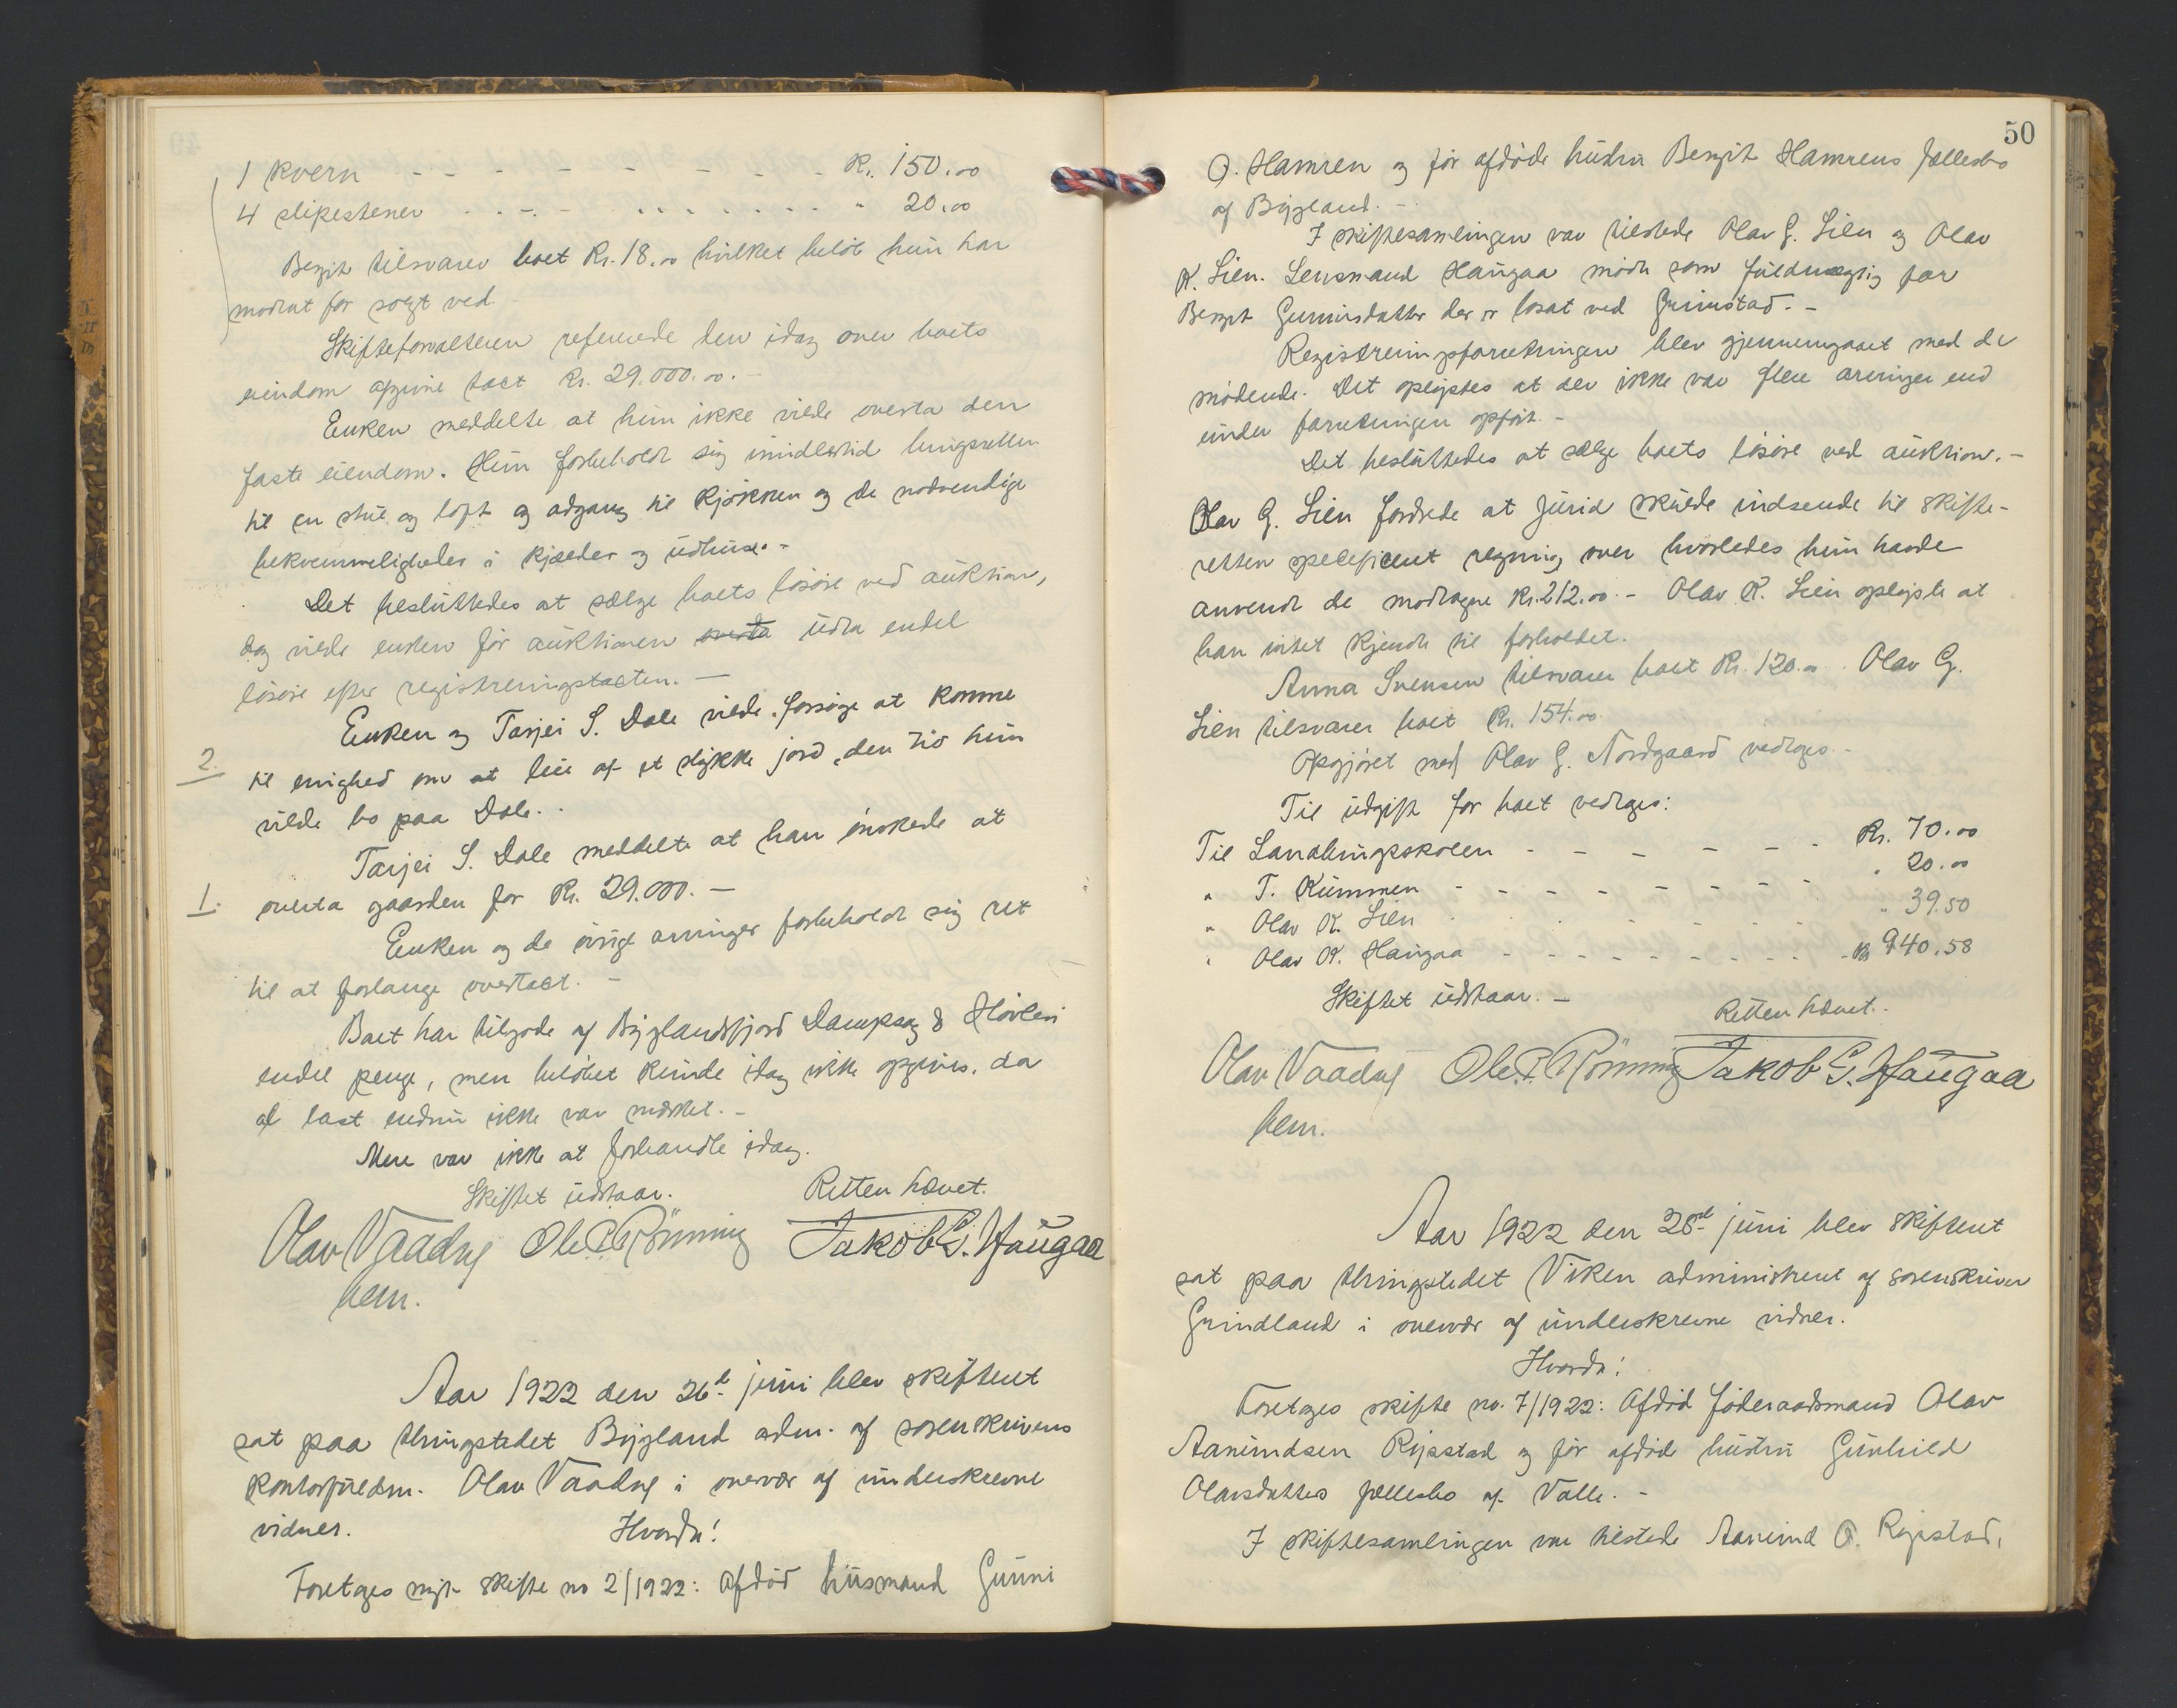 1 kvern - - - - - - - - Kr. 150.00
4 slipestener - - - - - - - " 20.00
Bergit tilsvarer boet Kr. 18.00 hvilket beløb hun har
mottat for solgt ved.
Skifteforvalteren refererede den idag over boets
eiendom afgivne taxt Kr. 29.000.00.
Enken meddelte at hun ikke vilde overta den
faste eiendom. Hun forbeholdt sig imidlertid brugsretten
til en stue og loft og adgang til kjøkken og de nødvendige
bekvemmeligheder i kjælder og udhuse. -
Det besluttedes at sælge boets løsøre ved auktion,
dog vilde enken før auktionen overta udta endel
løsøre efter registreringstaxten. -
Enken og Tarjei S. Dale vilde forsøge at komme
2.
til enighed om at leie af et stykke jord, den tid hun
vilde bo paa Dale. -
Tarjei S. Dale meddelte at han ønskede at
1.
overta gaarden for Kr. 29.000. -
Enken og de øvrige arvinger forbeholdt sig ret
til at forlange overtaxt. -
Boet har tilgode af Byglandsfjord Dampsag & Høvleri
endel penge, men beløbet kunde idag ikke opgives, da
al last endnu ikke var mærket. -
Mere var ikke at forhandle idag.
Skiftet udstaar. Retten hævet.
Olav Vaadng Ole P. Rönning Jakob G. Haugaa
bem.
Aar 1922 den 26d. juni blev skifteret
sat paa thingstedet Bygland adm. af sorenskrivens
kontorfuldm. Olav Vaadng i overvær af underskrevne
vidner. Hvorda!
Foretages nyt skifte no 2/1922: Afdød husmand Gunni
50
O. Hamren og før afdøde hustru Bergit Hamrens fællesbo
af Bygland. -
I skiftesamlingen var tilstede Olav G. Lien og Olav
K. Lien. Lensmand Haugaa mødte som fuldmægtig for
Bergit Gunnisdatter der er bosat ved Grimstad. -
Registreringsforretningen blev gjennemgaaet med de
mødende. Det oplystes at der ikke var flere arvinger end
under forretningen opført. -
Det besluttedes at sælge boets løsøre ved auktion. -
Olav G. Lien fordrede at Jurid skulde indsende til skifte-
retten specificert regning over hvorledes hun havde
anvendt de modtagne Kr. 212.00 - Olav K. Lien oplyste at
han intet kjendte til forholdet.
Anna Svensen tilsvarer boet Kr. 120.00. Olav G.
Lien tilsvarer boet Kr. 154.00
Opgjøret med Olav G. Nordgaard vedtoges. -
Til udgift for boet vedtoges:
Til Landhingsskolen - - - - - - Kr. 70.00
" T. Kummen - - - - - - - - " 20.00
" Olav K. Lien - - - - - - " 39.50
" Olav K. Haugaa - - - - - - - - - Kr 940.58
Skiftet udstaar. - Retten hævet.
Olav Vaadng Ole P. Rönning Jakob G. Haugaa
bem.
Aar 1922 den 28d. juni blev skifteret
sat paa thingstedet Viken administrert af sorenskriver
Grindland i overvær af underskrevne vidner.
Hvorda!
Foretages skifte no. 7/1922: Afdød føderaadsmand Olav
Aanundsen Rysstad og før afdød hustru Gunhild
Olavsdatters fællesbo af Valle. -
I skiftesamlingen var tilstede Aanund O. Rysstad,